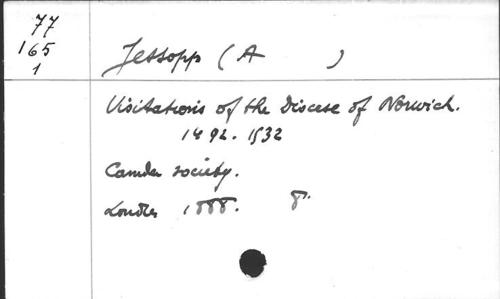 77
165
1
Jessopp (A )
Visitations of the Diocese of Norwich.
1492. 1532
Camden society.
Londres 1888. 8°.